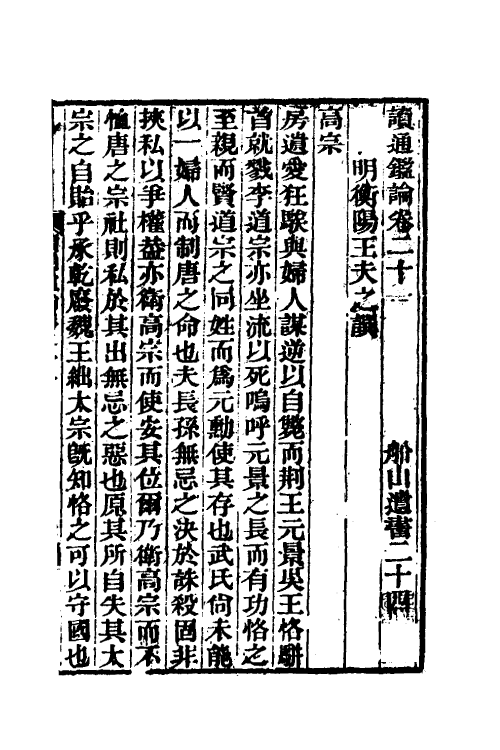 讀通鑑論卷二十一　船山遺書二十四
明衡陽王夫之譔
高宗
房遺愛狂騃與婦人謀逆以自斃而荆王元景吳王恪駢
首就戮李道宗亦坐流以死嗚呼元景之長而有功恪之
至親而賢道宗之同姓而爲元勳使其存也武氏尙未能
以一婦人而制唐之命也夫長孫無忌之決於誅殺固非
挾私以爭權益亦衛高宗而使安其位爾乃衛高宗而不
恤唐之宗社則私於其出無忌之惡也原其所自失其太
宗之自貽乎承乾廢魏王絀太宗旣知恪之可以守國也